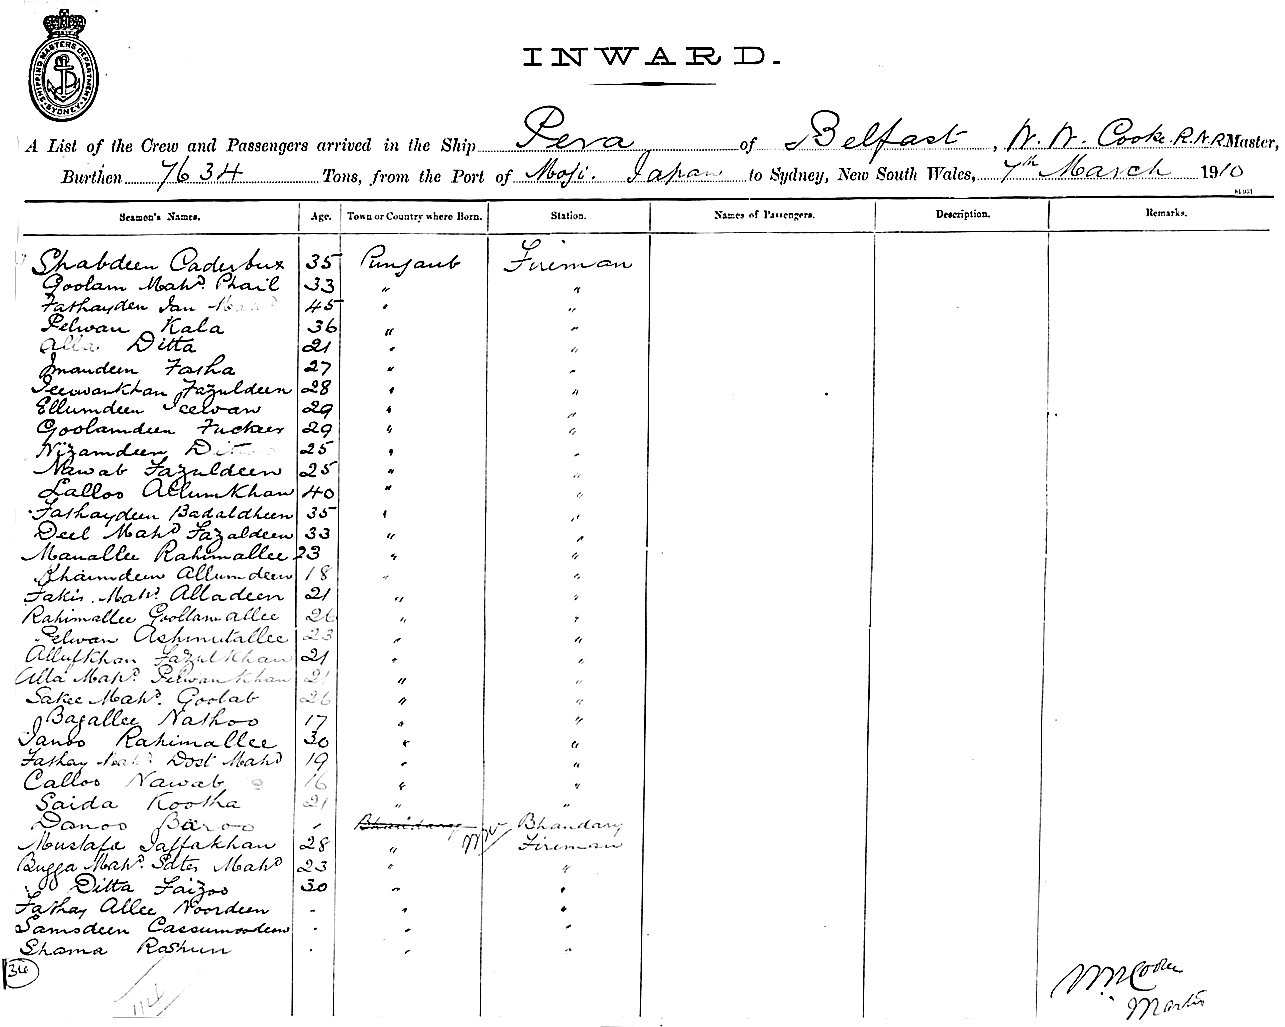 SHIPPING MASTERS DEPARTMENT SYDNEY
INWARD.
A List of the Crew and Passengers arrived in the Ship Pera of Belfast, W. W. Cooke. R.N.R Master,
Burthen 7634 Tons, from the Port of Moji. Japan to Sydney, New South Wales, 7th March 1910
Seamen's Names. Age. Town or Country where Born. Station. Names of Passengers. Description. Remarks.
Shabdeen Caderbux 35 Punjaub Fireman
Goolam Mahd. Phail 33 " "
Fathayden Jan Mahd 45 " "
Pelwan Kala 36 " "
Alla Ditta 21 " "
Imandeen Fasha 27 " "
Jeewankhan Fazuldeen 28 " "
Ellumdeen Jeewan 29 " "
Goolamdeen Fuckeer 29 " "
Nizamdeen Ditta 25 " "
Nawab Fazuldeen 25 " "
Lalloo Allumkhan 40 " "
Fathaydeen Badaldheen 35 " "
Deel Mahd Fazaldeen 33 " "
Manallee Rahimallee 23 " "
Khaimdeen Allumdeen 18 " "
Fakir. Mahd. Alladeen 21 " "
Rahimallee Goollamallee 26 " "
Pelwan Ashmutallee 23 " "
Allufkhan Fazulkhan 21 " "
Alla Mahd. Pelwankhan 21 " "
Sakee Mahd. Goolab 26 " "
Bagallee Nathoo 17 " "
Janoo Rahimallee 30 " "
Fathay Mahd Dost Mahd 19 " "
Calloo Nawab 16 " "
Saida Kootha 21 " "
Danoo Baroo " Bhandary Bhandary
Mustafa Jaffakhan 28 " Fireman
Bugga Mahd. Pater Mahd 23 " "
Ditta Faizoo 30 " "
Fathay Allee Noordeen - " "
Samsdeen Cassumoodeen - " "
Shama Rashun - " "
34
114
W W Cooke
Master